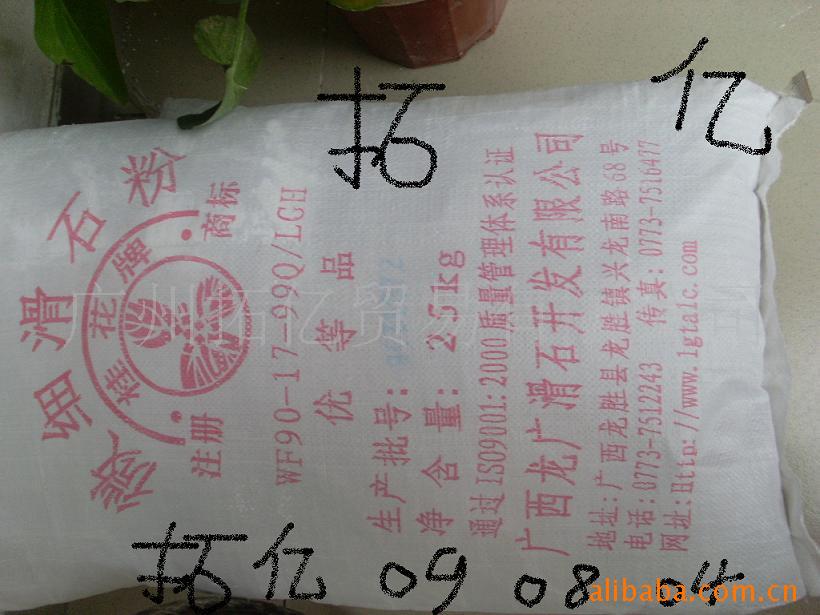 拓 亿
微细滑石粉
桂花牌
注册 商标
WF90-17-99Q/LGH
优等品
生产批号:
净含量: 25kg
通过ISO9001:2000质量管理体系认证
广西龙广滑石开发有限公司
地址:广西龙胜县龙胜镇兴龙南路68号
电话:0773-7512243 传真:0773-7516477
网址:Http://www.lgtalc.com
广州拓亿贸易
拓亿 09 08 04
alibaba.com.cn